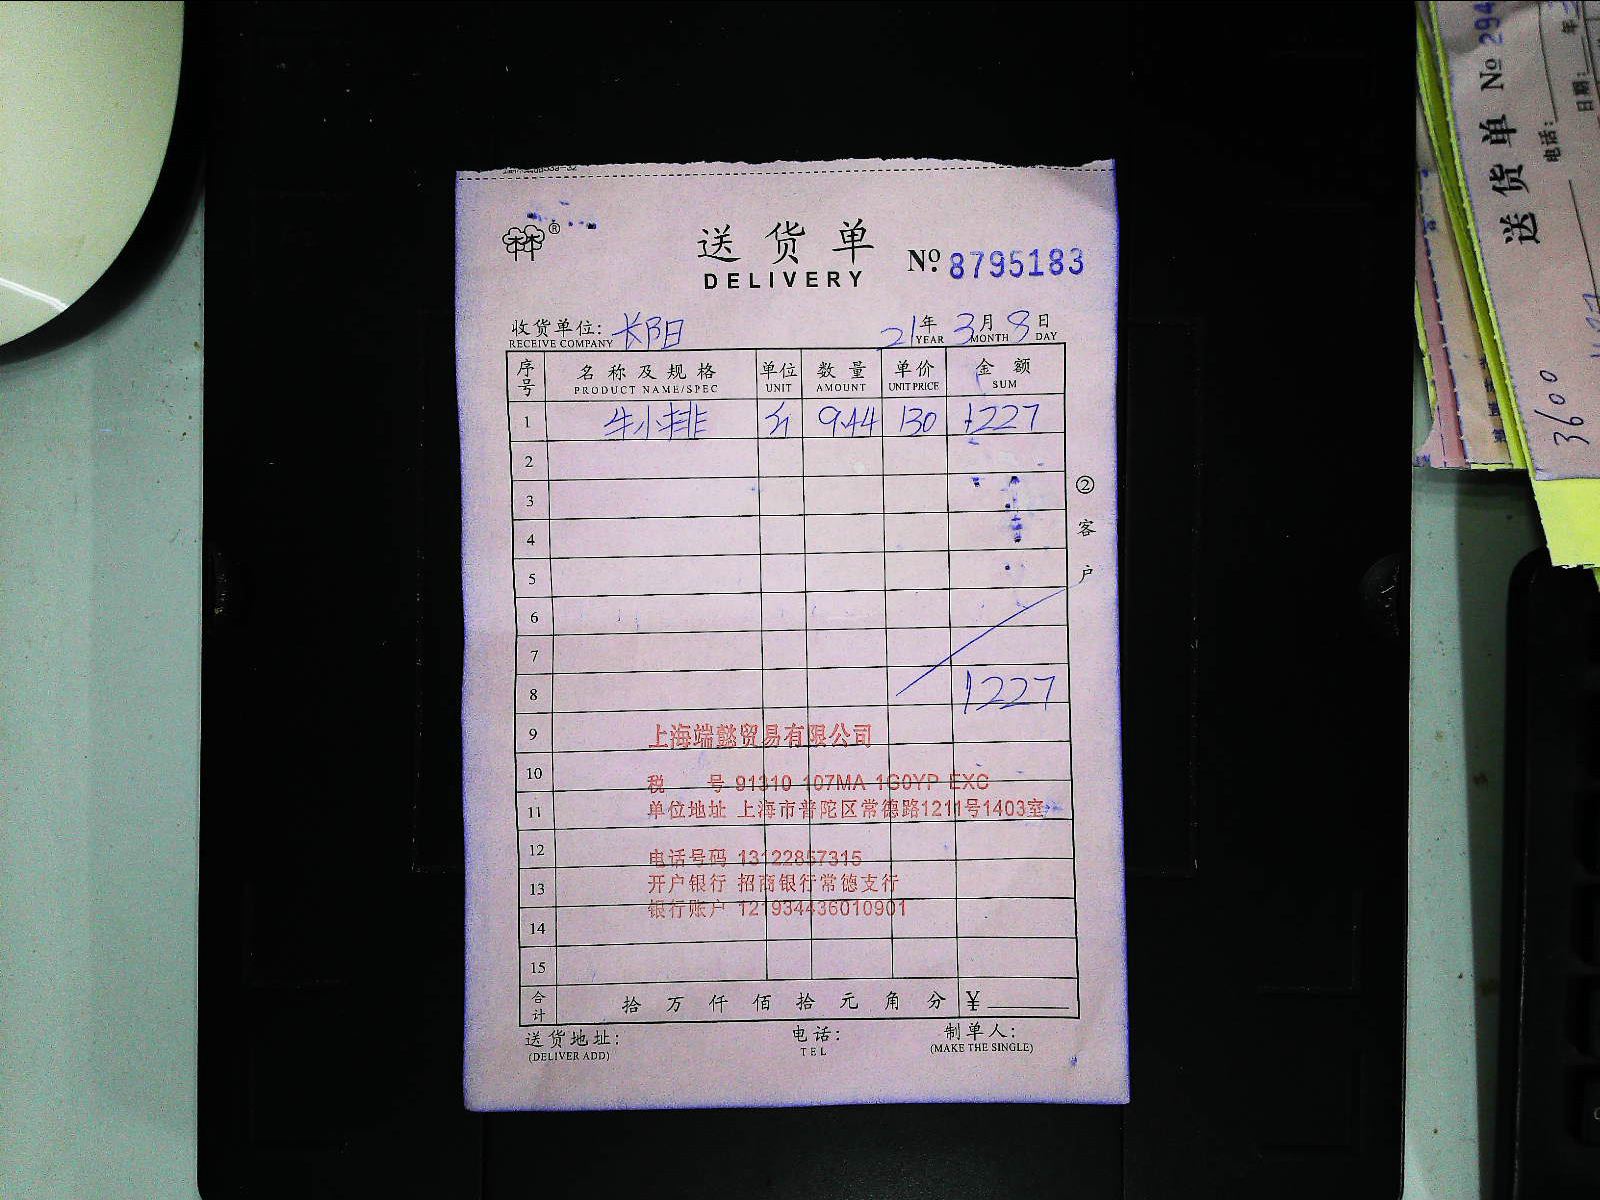 林林®
送货单
DELIVERY
№ 8795183
收货单位: 长阳 21年 3月 8日
RECEIVE COMPANY YEAR MONTH DAY
序号 名称及规格 单位 数量 单价 金额
PRODUCT NAME/SPEC UNIT AMOUNT UNIT PRICE SUM
1 牛小排 斤 9.44 130 1227
2
3
4
5
6
7
8 1227
9
10
11
12
13
14
15
② 客户
上海端懿贸易有限公司
税 号 91310 107MA 1G0YP EXC
单位地址 上海市普陀区常德路1211号1403室
电话号码 13122857315
开户银行 招商银行常德支行
银行账户 121934436010901
合计 拾 万 仟 佰 拾 元 角 分 ¥
送货地址: 电话: 制单人:
(DELIVER ADD) TEL (MAKE THE SINGLE)
送货单 № 294
电话:
日期: 年
3600